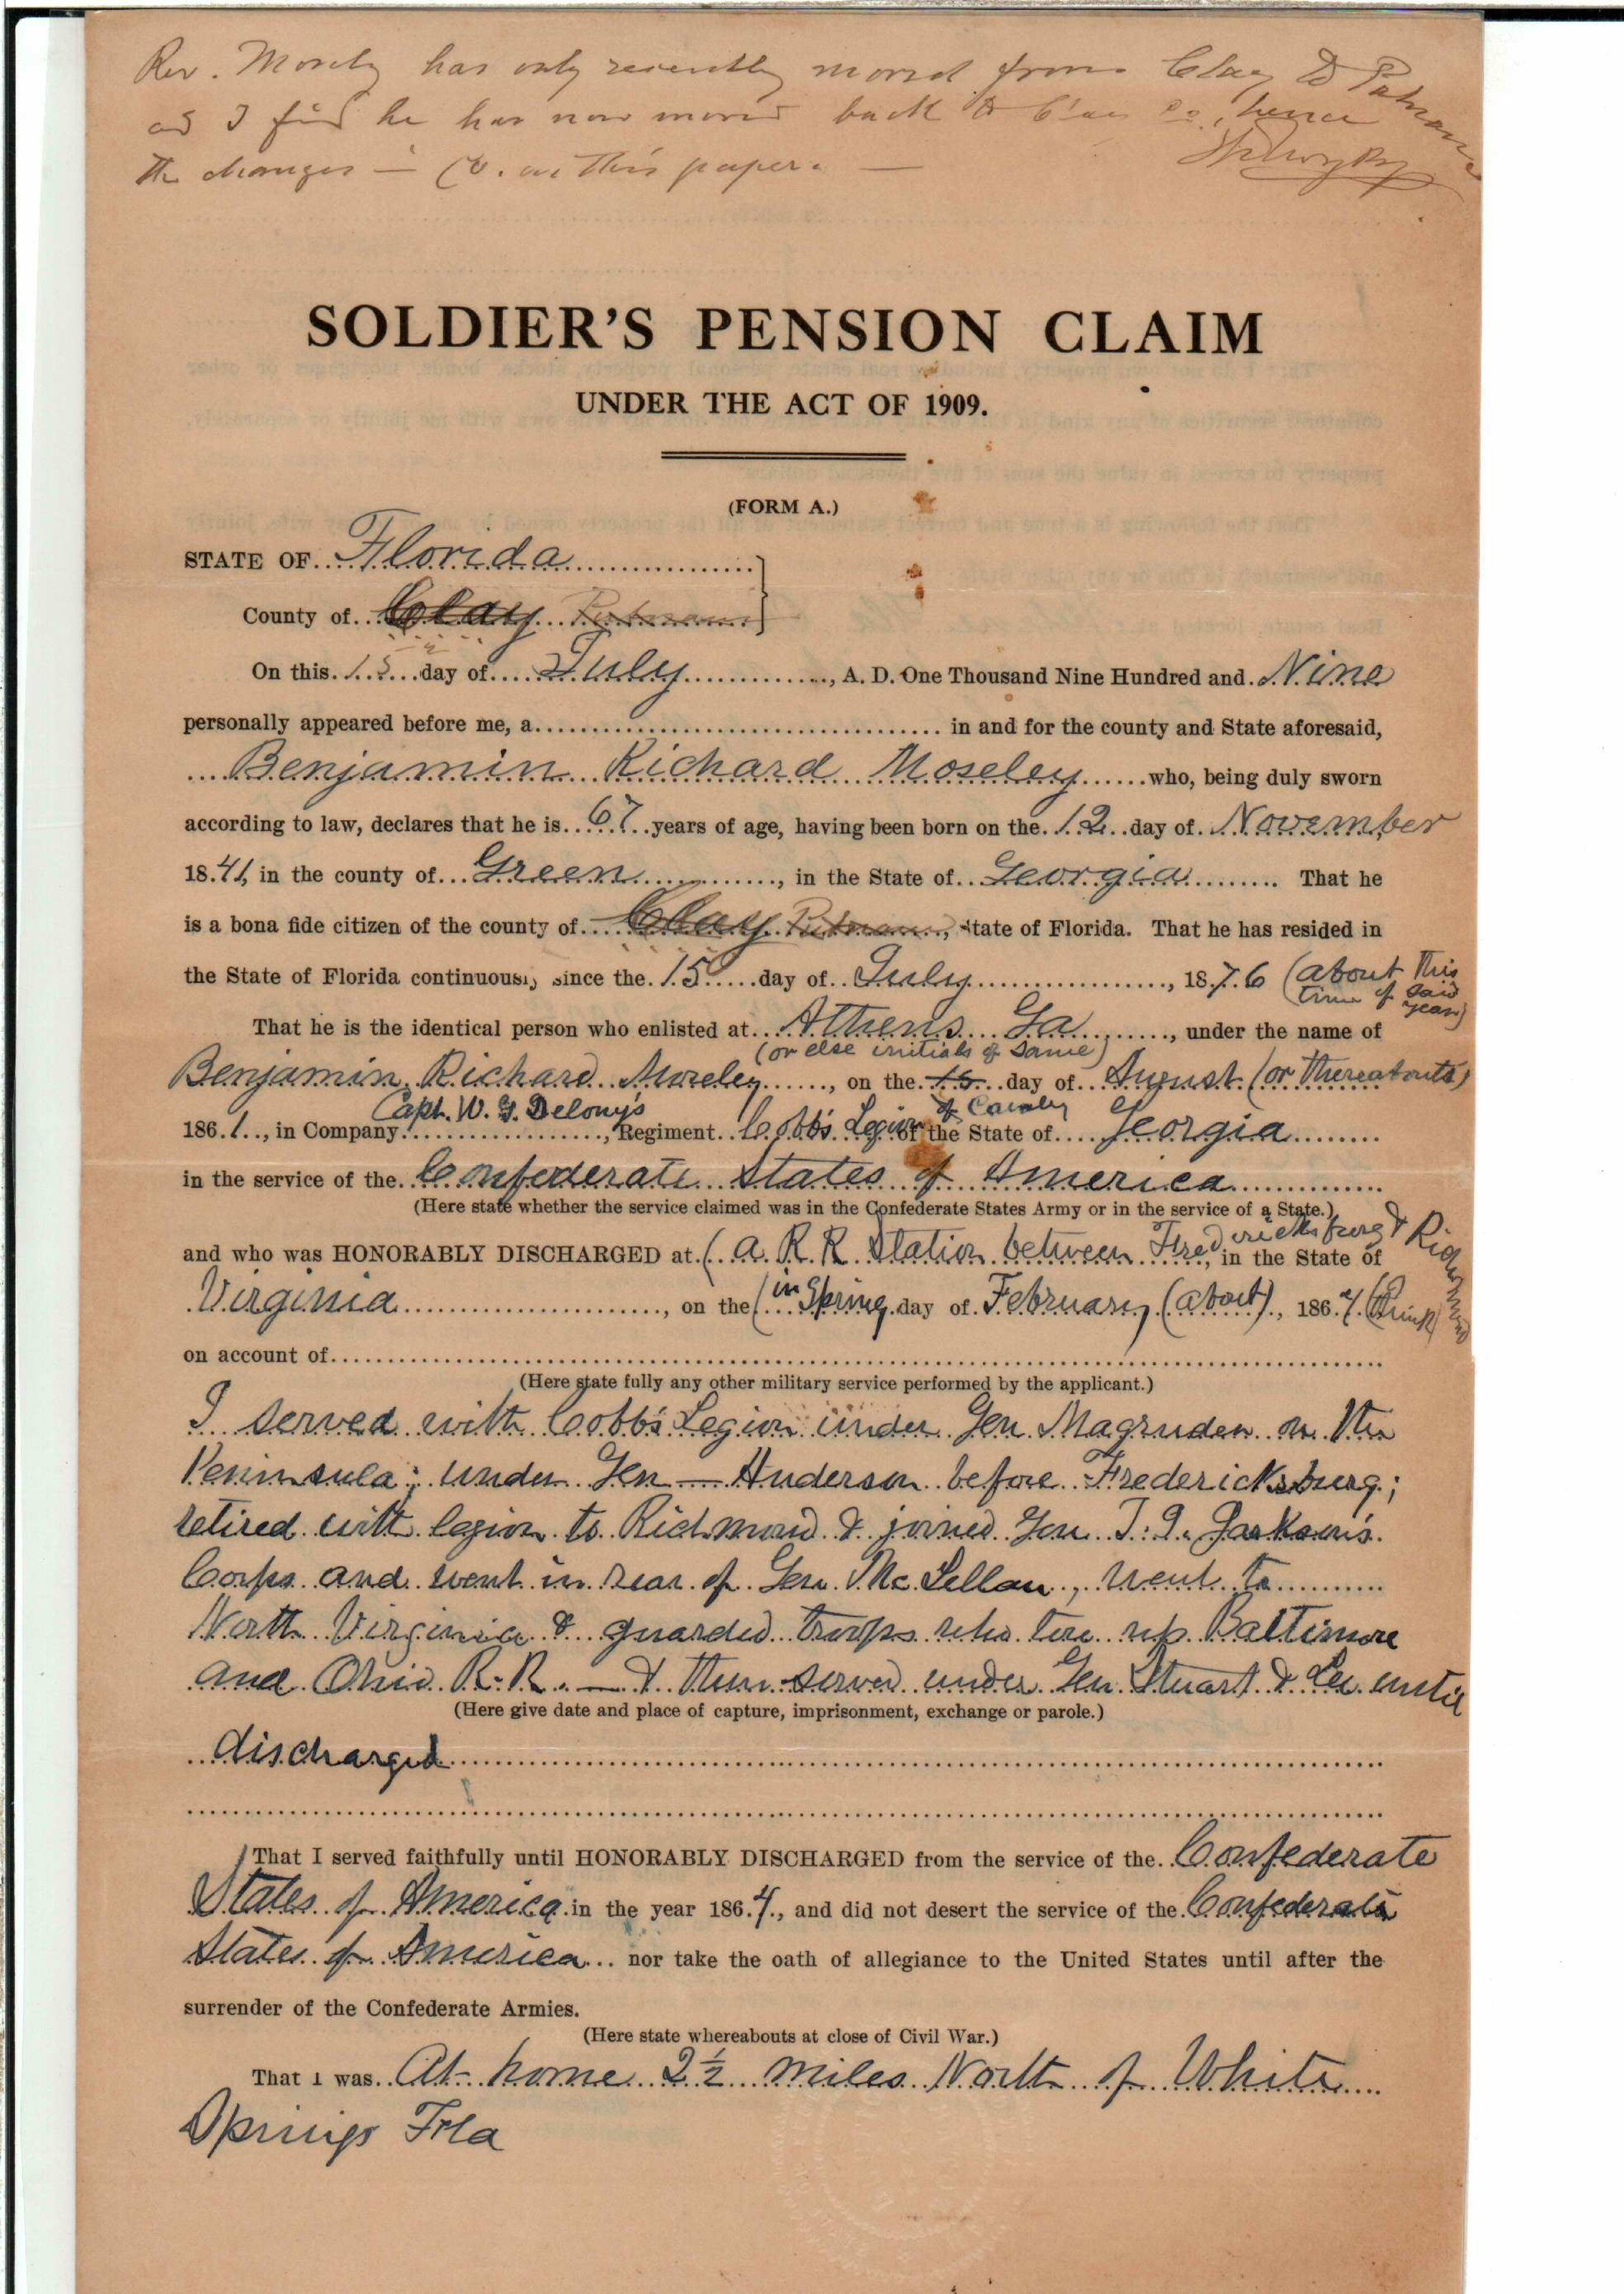 Rev. Mosely has only recently moved from Clay to Putnam
and I find he has now moved back to Clay Co., hence
the changes in Co. on this paper. —
SOLDIER'S PENSION CLAIM
UNDER THE ACT OF 1909.
(FORM A.)
STATE OF Florida
County of Clay Putnam
On this 15 day of July, A. D. One Thousand Nine Hundred and Nine
personally appeared before me, a in and for the county and State aforesaid,
Benjamin Richard Moseley who, being duly sworn
according to law, declares that he is 67 years of age, having been born on the 12 day of November
1841, in the county of Green, in the State of Georgia That he
is a bona fide citizen of the county of Clay Putnam, State of Florida. That he has resided in
the State of Florida continuously since the 15 day of July, 1876 (about this
time of said
year)
That he is the identical person who enlisted at Athens Ga, under the name of
(or else initials of same)
Benjamin Richard Moseley, on the 15 day of August (or thereabouts)
Capt. W. G. Delony's of Cavalry
1861, in Company, Regiment Cobb's Legion of the State of Georgia
in the service of the Confederate States of America
(Here state whether the service claimed was in the Confederate States Army or in the service of a State.)
and who was HONORABLY DISCHARGED at (a R R Station between Fredericksburg & Richmond, in the State of
Virginia, on the (in Spring day of February (about), 1864 (think)
on account of
(Here state fully any other military service performed by the applicant.)
I served with Cobb's Legion under Gen Magruder on the
Peninsula; under Gen — Anderson before Fredericksburg;
retired with legion to Richmond & joined Gen T. J. Jackson's
Corps and went in rear of Gen. McLellan, went to
North Virginia & guarded troops who tore up Baltimore
and Ohio R.R. — & then served under Gen Stuart & Lee until
(Here give date and place of capture, imprisonment, exchange or parole.)
discharged
That I served faithfully until HONORABLY DISCHARGED from the service of the Confederate
States of America in the year 1864, and did not desert the service of the Confederate
States of America nor take the oath of allegiance to the United States until after the
surrender of the Confederate Armies.
(Here state whereabouts at close of Civil War.)
That I was At home 2½ miles North of White
Springs Fla